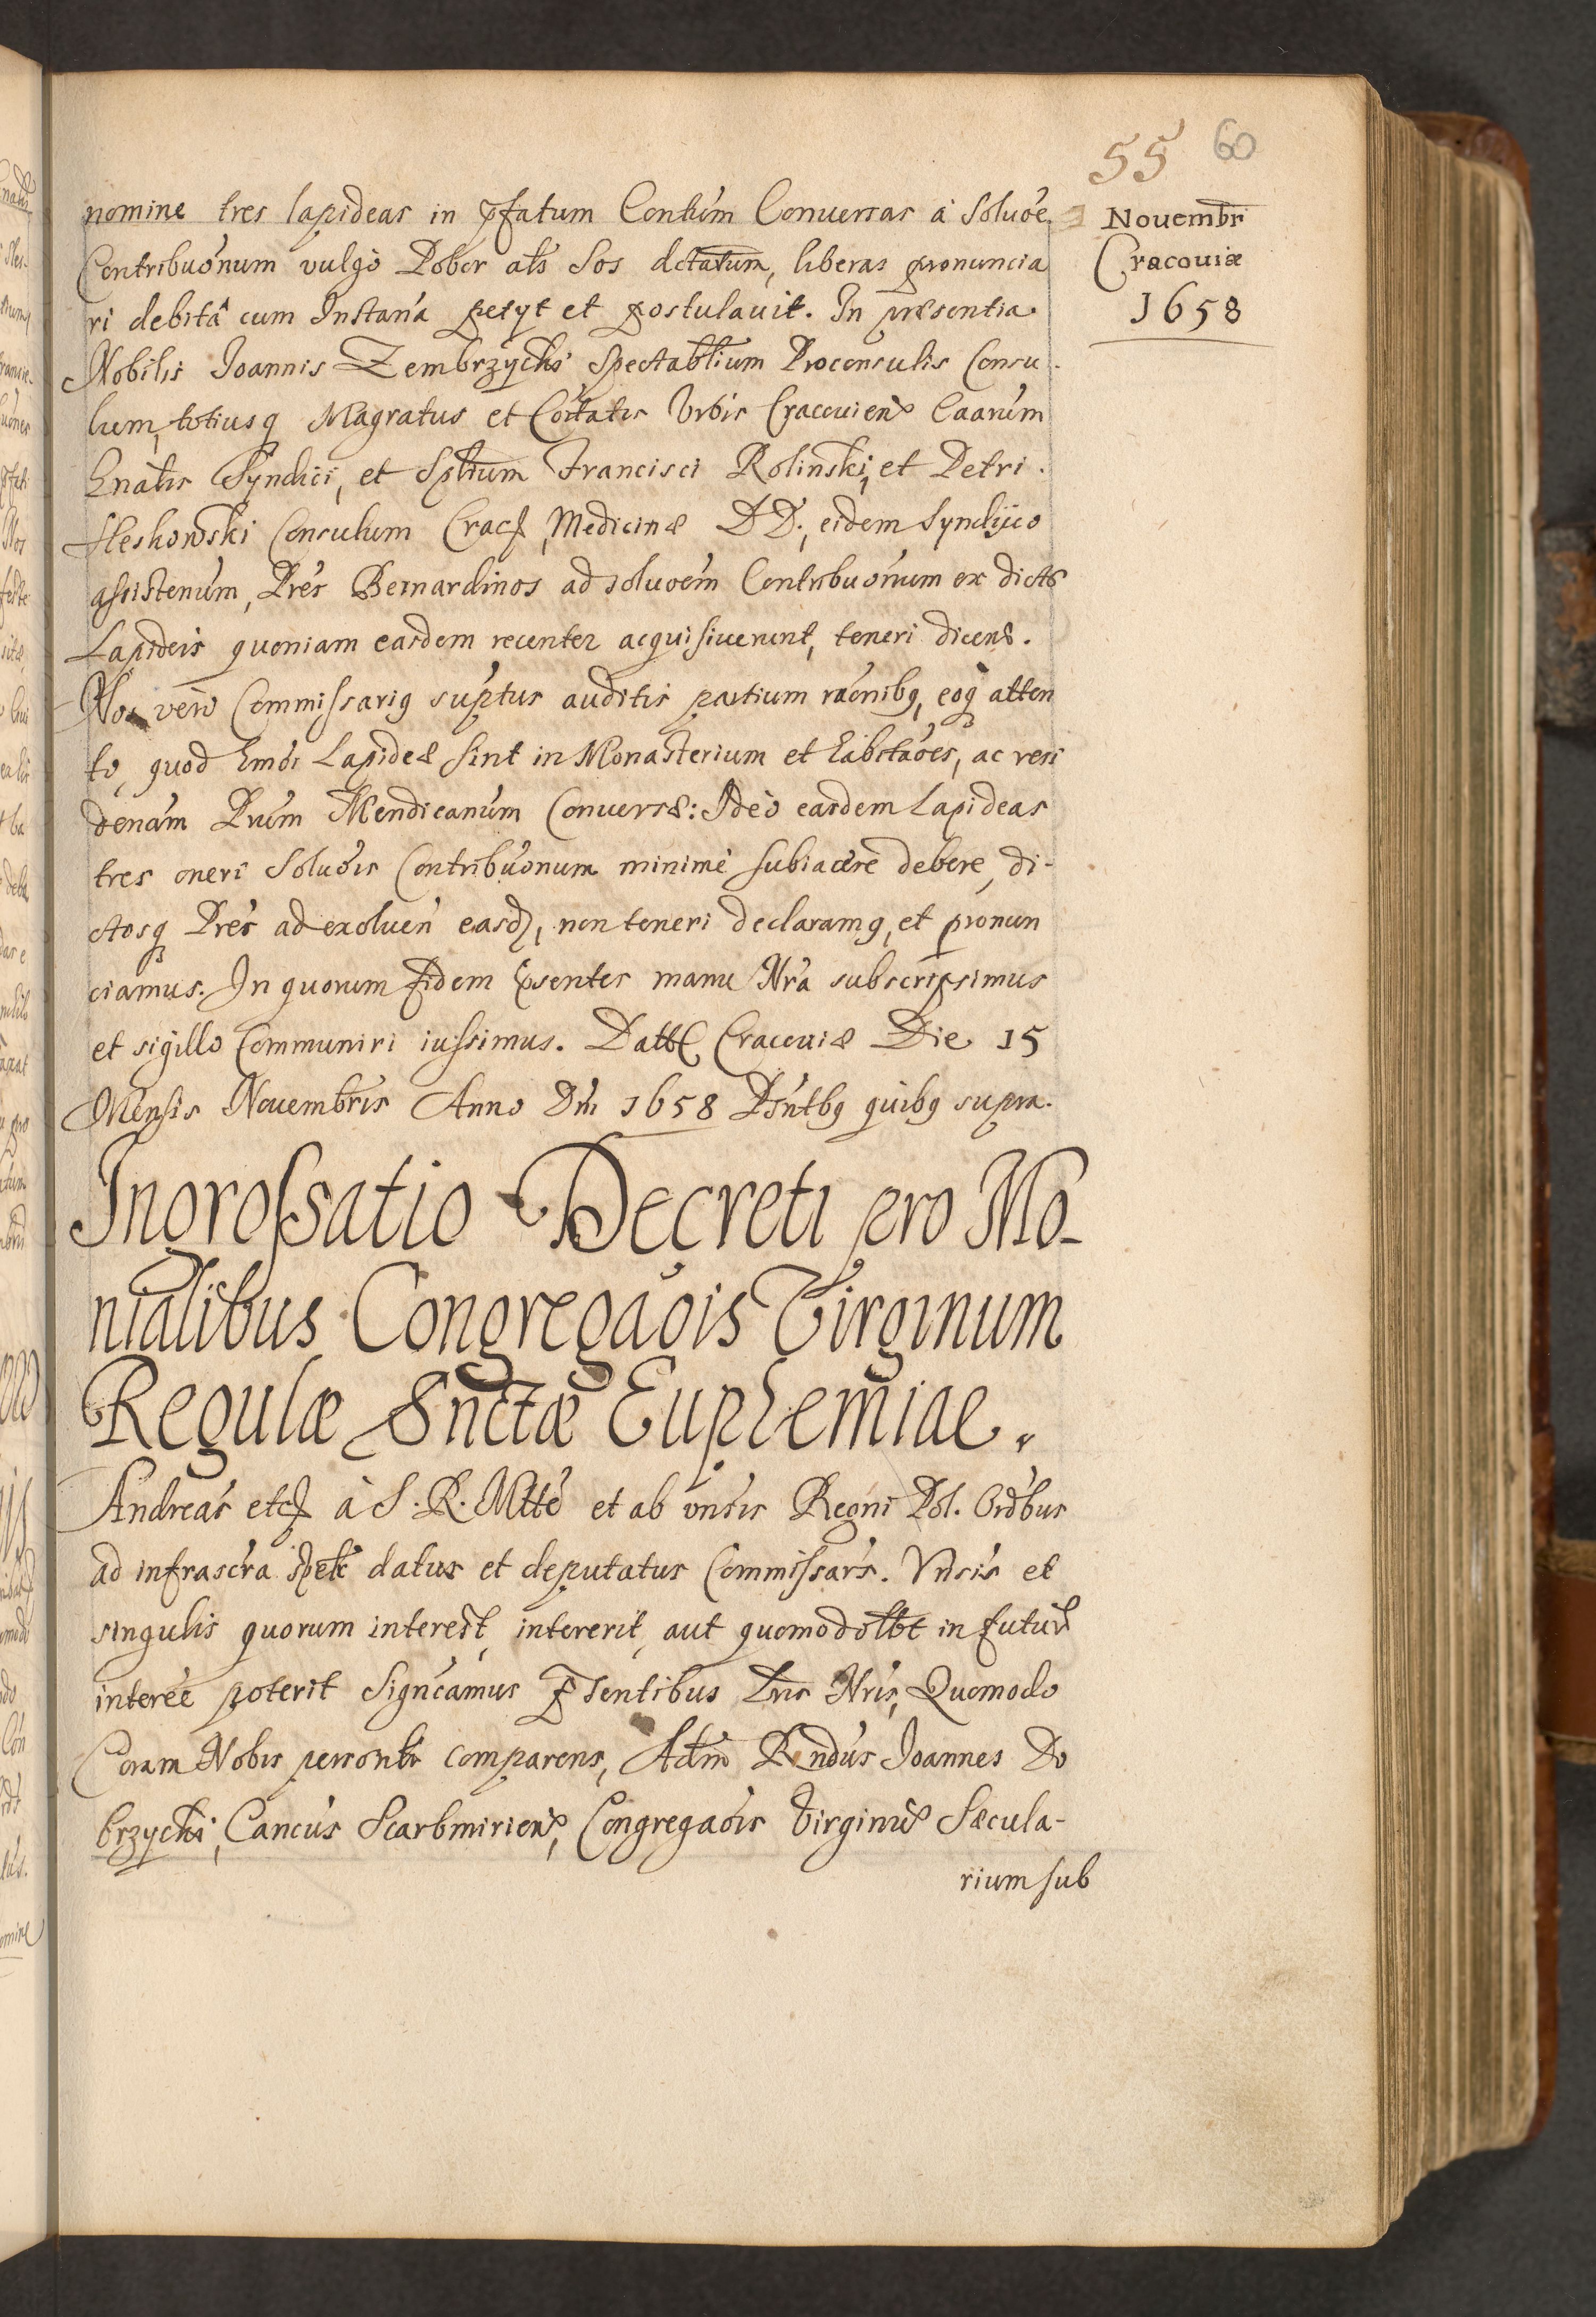 55 60
Nouembr
Cracouiæ
1658
nomine tres lapideas in pfatum Contum Conuersas à Soluoe
Contribuonum vulgò Pobor als Sos dctatum, liberas pronuncia
ri debitâ cum Instana petyt et postulauit. In præsentia
Nobilis Joannis Zembrzycki Spectabilium Proconsulis Consu-
lum, totiusq Magratus et Coitatis Vrbis Cracouien Caarum
Gnalis Syndici, et Sptlium Francisci Rolinski, et Petri
Hleskowski Consulum Crac, Medicinæ DD, eidem Syndyco
assistenum, Pres Bernardinos ad soluoem Contribuonum ex dictis
Lapideis quoniam easdem recenter acquisiuerunt, teneri dicens.
Nos verò Commissarig suptus auditis partium raonibg, eoq atten
to, quod Lapideæ sint in Monasterium et habitaoes, ac resi
denam Prum Mendicanum Conuersæ: Ideò easdem Lapideas
tres oneri Soluois Contribuonum minimè subiacere debere, di-
ctosq Pres ad exoluen easd, non teneri declaramg, et pronun
ciamus. In quorum fidem psentes manu Nra subscripsimus
et sigillo Communiri iussimus. Datt Cracouiæ Die 15
Mensis Nouembris Anno Dni 1658 Psntbg quibg supra.
Inorossatio Decreti pro Mo-
nialibus Congregaois Virginum
Regulæ Snctæ Euphemiae.
Andreas etc à S. R. Mtte et ab vnsis Regni Pol. Ordbus
ad infrascra spetr datus et deputatus Commissars. Vnsis et
singulis quorum interest, intererit, aut quomodolbt in futur
interee poterit Signcamus Psentibus Lris Nris, Quomodo
Coram Nobis personlr comparens, Adm Rndus Joannes Do
brzycki, Cancus Scarbmirien, Congregaois Virginu Sæcula-
rium sub